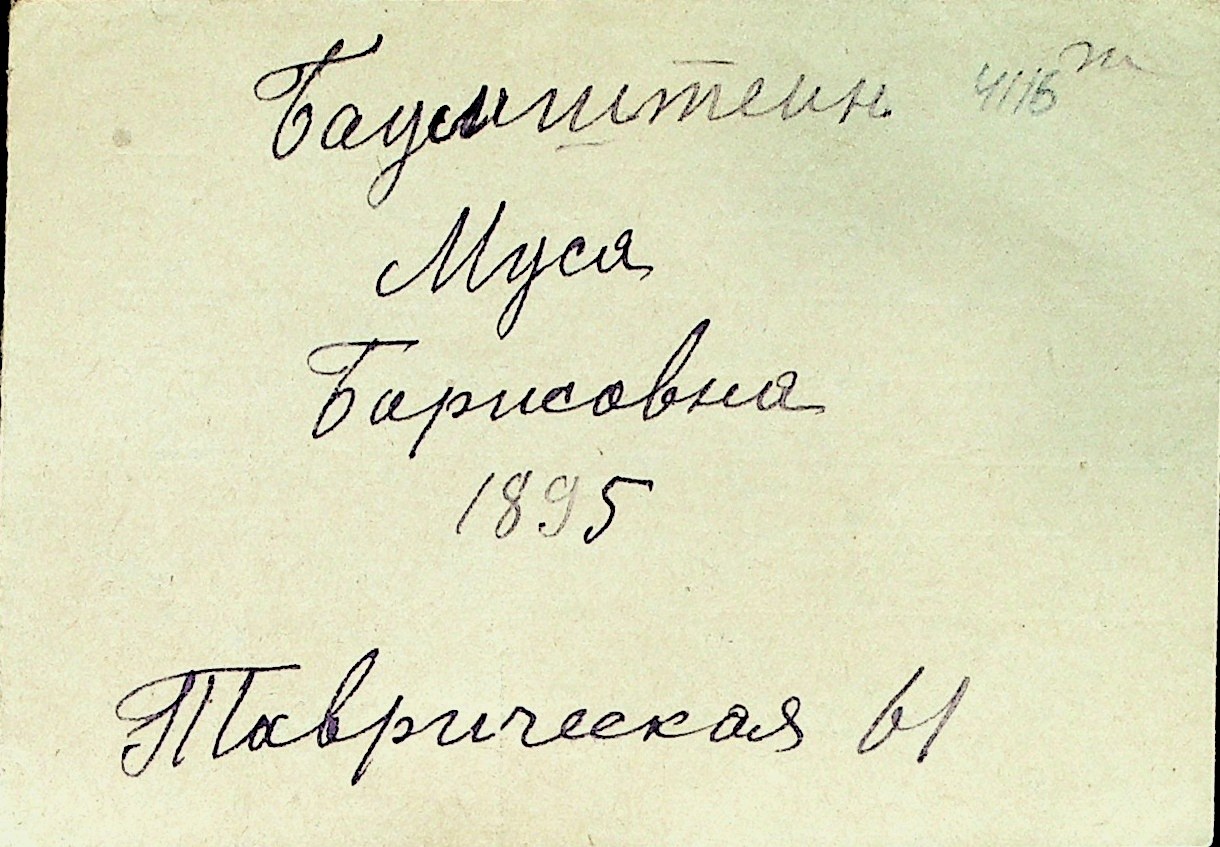 Баумштейн 4116
Муся
Борисовна
1895
Таврическая 61